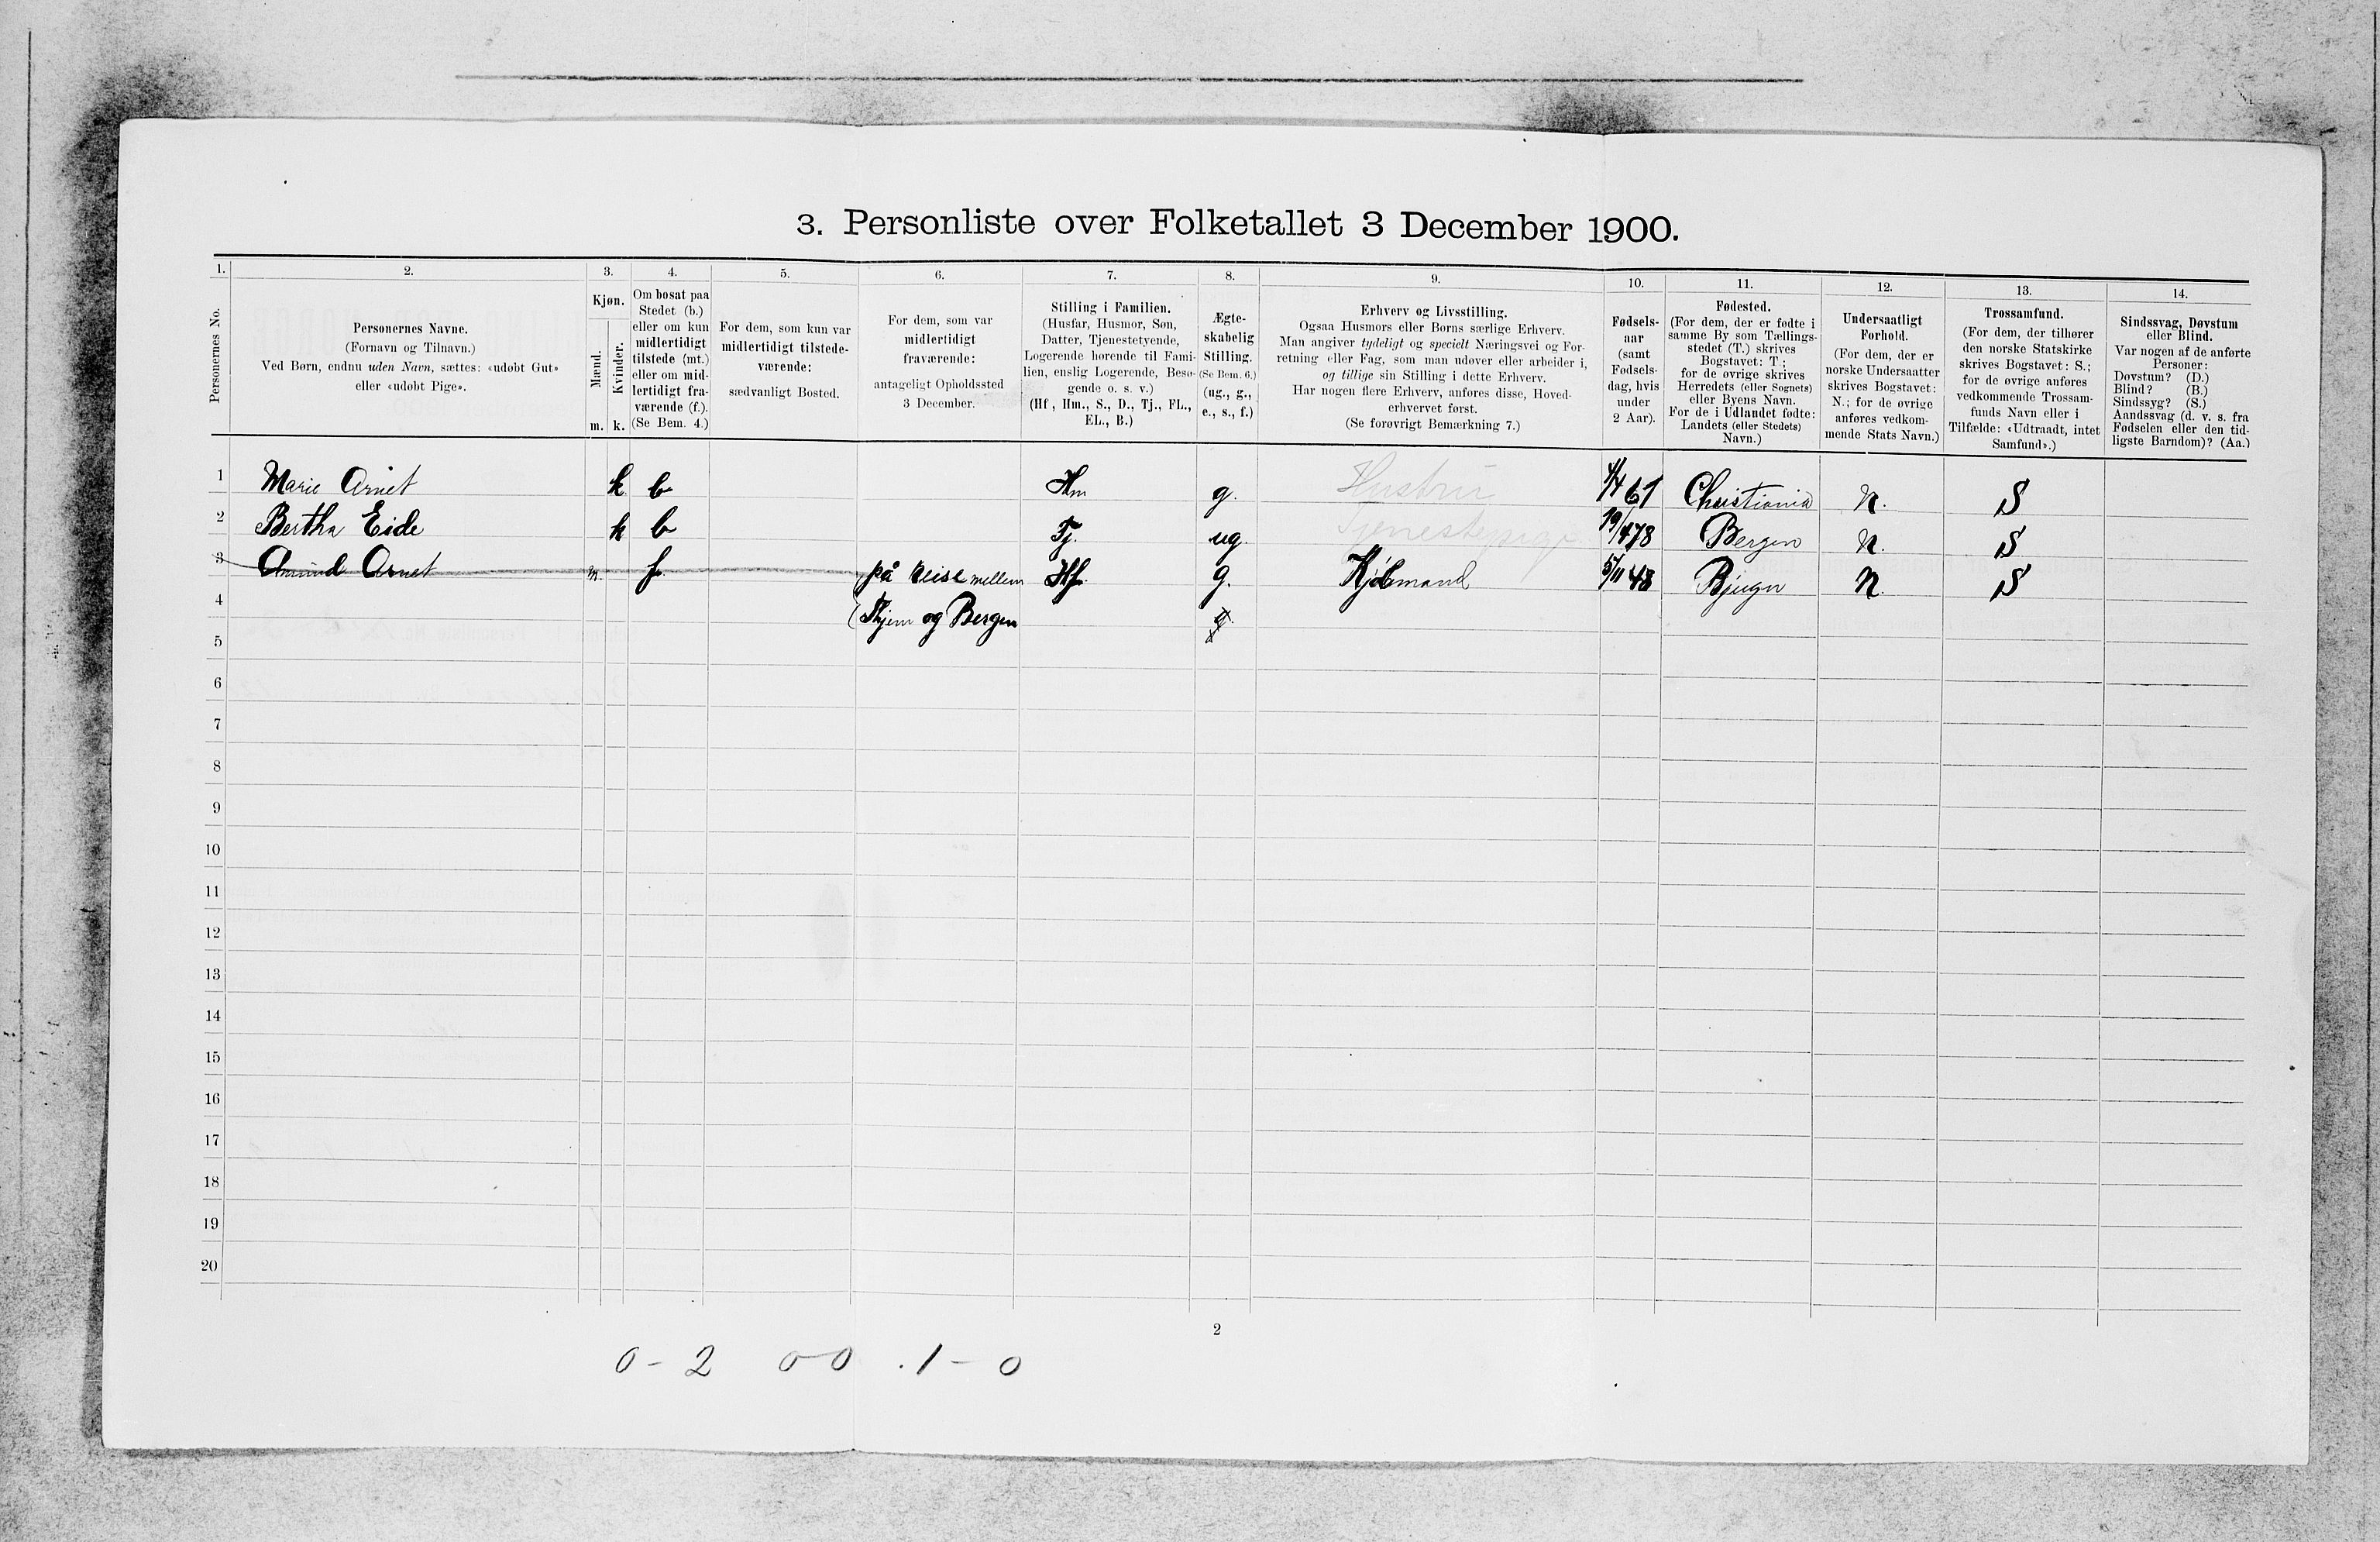 3. Personliste over Folketallet 3 December 1900.
1. 2. 3. 4. 5. 6. 7. 8. 9. 10. 11. 12. 13. 14.
Personernes No.
Personernes Navne.
(Fornavn og Tilnavn.)
Ved Børn, endnu uden Navn, sættes: «udøbt Gut»
eller «udøbt Pige».
Kjøn.
Mænd.
Kvinder.
m. k.
Om bosat paa
Stedet (b.)
eller om kun
midlertidigt
tilstede (mt.)
eller om mid-
lertidigt fra-
værende (f.).
(Se Bem. 4.)
For dem, som kun var
midlertidigt tilstede-
værende:
sædvanligt Bosted.
For dem, som var
midlertidigt
fraværende:
antageligt Opholdssted
3 December.
Stilling i Familien.
(Husfar, Husmor, Søn,
Datter, Tjenestetyende,
Logerende hørende til Fami-
lien, enslig Logerende, Besø-
gende o. s. v.)
(Hf, Hm., S., D., Tj., FL.,
EL., B.)
Ægte-
skabelig
Stilling.
(Se Bem. 6.)
(ug., g.,
e., s., f.)
Erhverv og Livsstilling.
Ogsaa Husmors eller Børns særlige Erhverv.
Man angiver tydeligt og specielt Næringsvei og For-
retning eller Fag, som man udøver eller arbeider i,
og tillige sin Stilling i dette Erhverv.
Har nogen flere Erhverv, anføres disse, Hoved-
erhvervet først.
(Se forøvrigt Bemærkning 7.)
Fødsels-
aar
(samt
Fødsels-
dag, hvis
under
2 Aar).
Fødested.
(For dem, der er fødte i
samme By som Tællings-
stedet (T.) skrives
Bogstavet: T;
for de øvrige skrives
Herredets (eller Sognets)
eller Byens Navn.
For de i Udlandet fødte:
Landets (eller Stedets)
Navn.)
Undersaatligt
Forhold.
(For dem, der er
norske Undersaatter
skrives Bogstavet:
N.; for de øvrige
anføres vedkom-
mende Stats Navn.)
Trossamfund.
(For dem, der tilhører
den norske Statskirke
skrives Bogstavet: S.;
for de øvrige anføres
vedkommende Trossam-
funds Navn eller i
Tilfælde: «Udtraadt, intet
Samfund».)
Sindssvag, Døvstum
eller Blind.
Var nogen af de anførte
Personer:
Døvstum? (D.)
Blind? (B.)
Sindssyg? (S.)
Aandssvag (d. v. s. fra
Fødselen eller den tid-
ligste Barndom)? (Aa.)
1 Marie Arnet k b Hm g. Hustru 61 Christiania N. S
2 Bertha Eide k b Tj. ug. Tjenestepige 19/4 78 Bergen N. S
3 Amund Arnet m. f. på Reise mellem Hf. g. Kjøbmand 5/11 48 Bjugn N. S
4 Thjem og Bergen g.
5
6
7
8
9
10
11
12
13
14
15
16
17
18
19
20
2
0 - 2 0-0 . 1 - 0